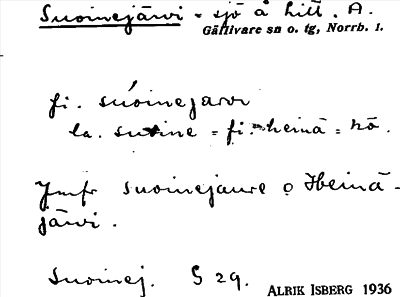 Suoinejärvi = sjö å hitt. A.
Gällivare sn o. tg, Norrb. l.
fi. súoinejarvi
la. suoine = fi. heinä = hö.
Jmfr suoinejaure o Heinä-
järvi.
Suoinej. S 29.
ALRIK ISBERG 1936